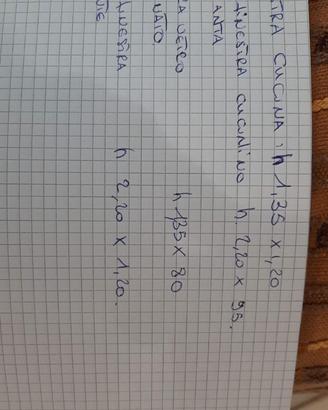 TRA CUCINA: h 1,35 x 1,20
FINESTRA CUCININO h. 2,20 x 95.
ANTA
VETRO h 1,35 x 80
FINESTRA h 2,20 x 1,20.